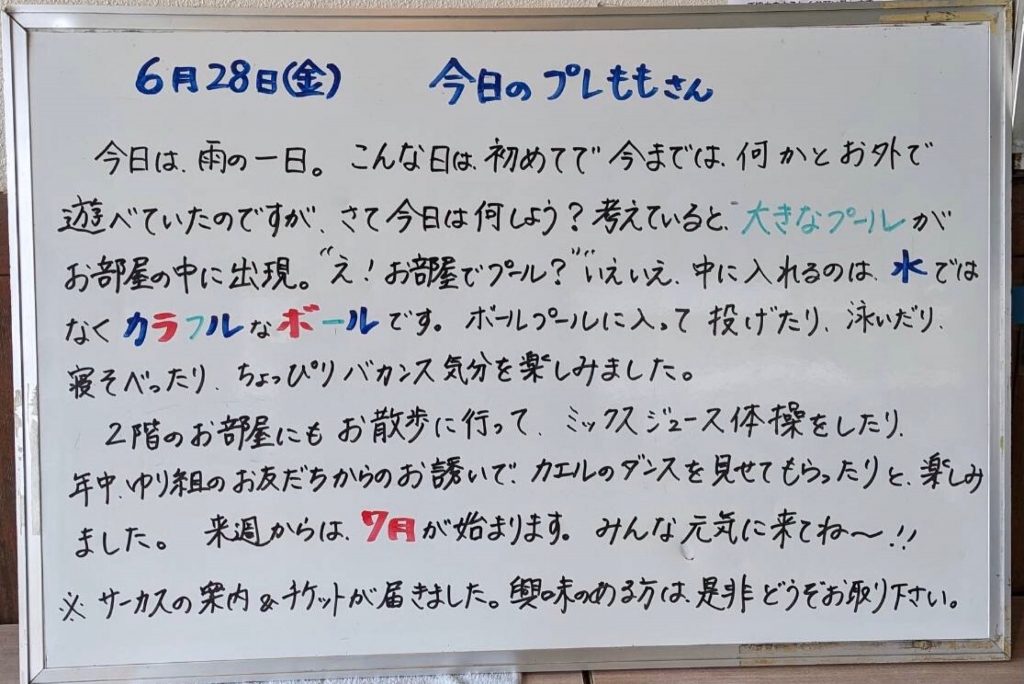 6月28日(金) 今日のプレももさん
今日は、雨の一日。こんな日は、初めてで今までは、何かとお外で
遊べていたのですが、さて今日は何しよう?考えていると、大きなプールが
お部屋の中に出現。"え!お部屋でプール?"いえいえ、中に入れるのは、水では
なくカラフルなボールです。ボールプールに入って投げたり、泳いだり、
寝そべったり、ちょっぴりバカンス気分を楽しみました。
2階のお部屋にもお散歩に行って、ミックスジュース体操をしたり、
年中、ゆり組のお友だちからのお誘いで、カエルのダンスを見せてもらったりと、楽しみ
ました。来週からは、7月が始まります。みんな元気に来てね〜!!
※サーカスの案内&チケットが届きました。興味のある方は、是非どうぞお取り下さい。